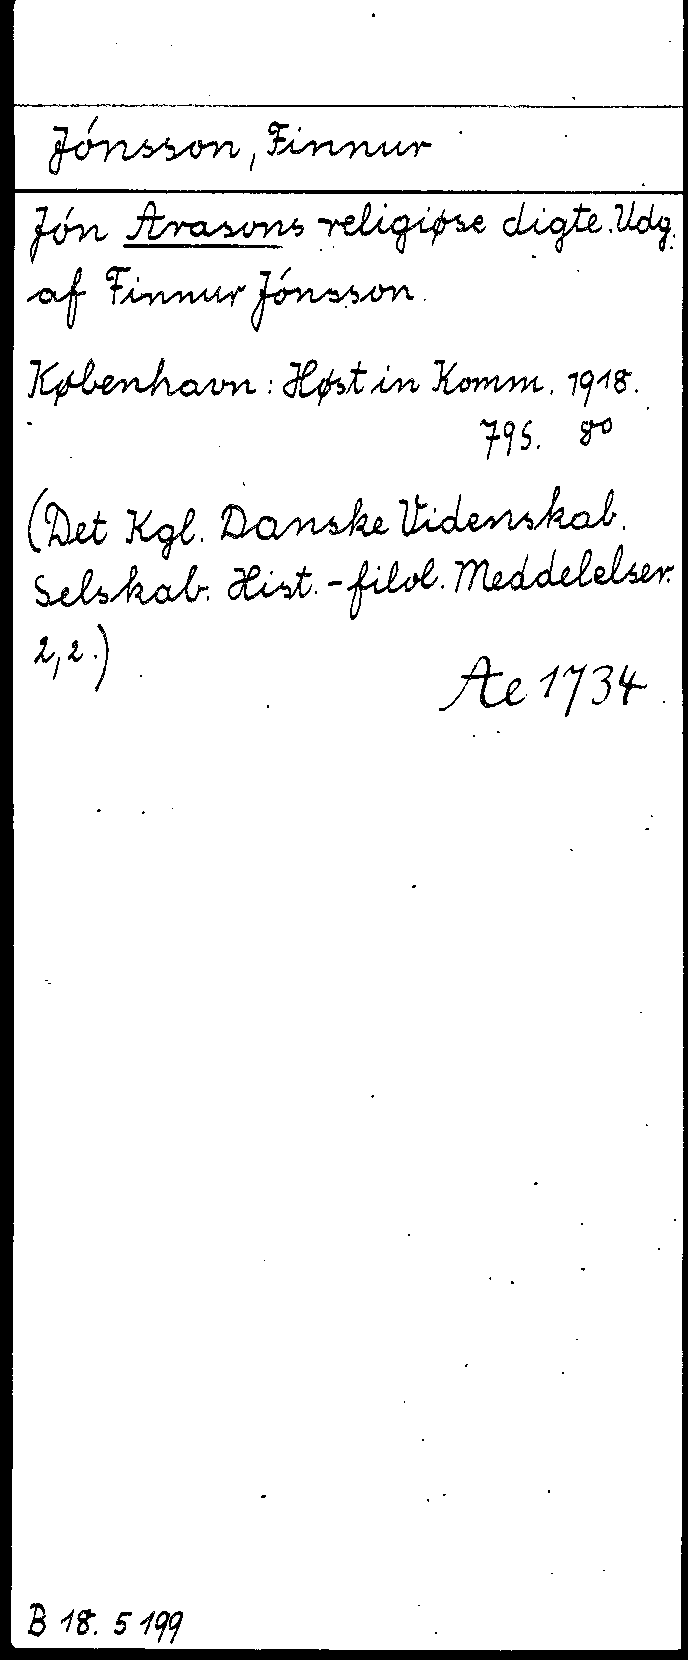 Jónsson, Finnur
Jón Arasons religiøse digte. Udg.
af Finnur Jónsson.
København: Høst in Komm. 1918.
79 S. 8°
(Det Kgl. Danske Videnskab.
Selskab. Hist.-filol. Meddelelser.
2,2.)
Ae 1734
B 18. 5 199